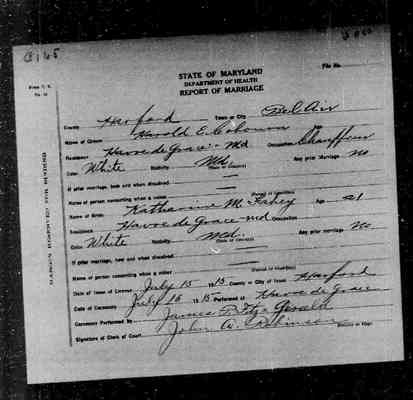 STATE OF MARYLAND
DEPARTMENT OF HEALTH
REPORT OF MARRIAGE
File No.
County Harford Town or City Bel Air
Name of Groom Harold E. Age
Residence Havre de Grace - Md Occupation Chauffeur
Color White Nativity Md. Any prior Marriage no
(State or Country)
If prior marriage, how and when dissolved
Name of person consenting when a minor
(Parent or Guardian)
Name of Bride Katharine M. Fahey Age 21
Residence Havre de Grace - Md Occupation
Color White Nativity Md. Any prior marriage no
(State or Country)
If prior marriage, how and when dissolved
Name of person consenting when a minor
(Parent or Guardian)
Date of Issue of License July 15 1915 County or City of Issue Harford
Date of Ceremony July 15 1915 Performed at Havre de Grace
Ceremony Performed by James T. Fitz Gerald
Signature of Clerk of Court John A. Robinson
MARGIN RESERVED FOR BINDING